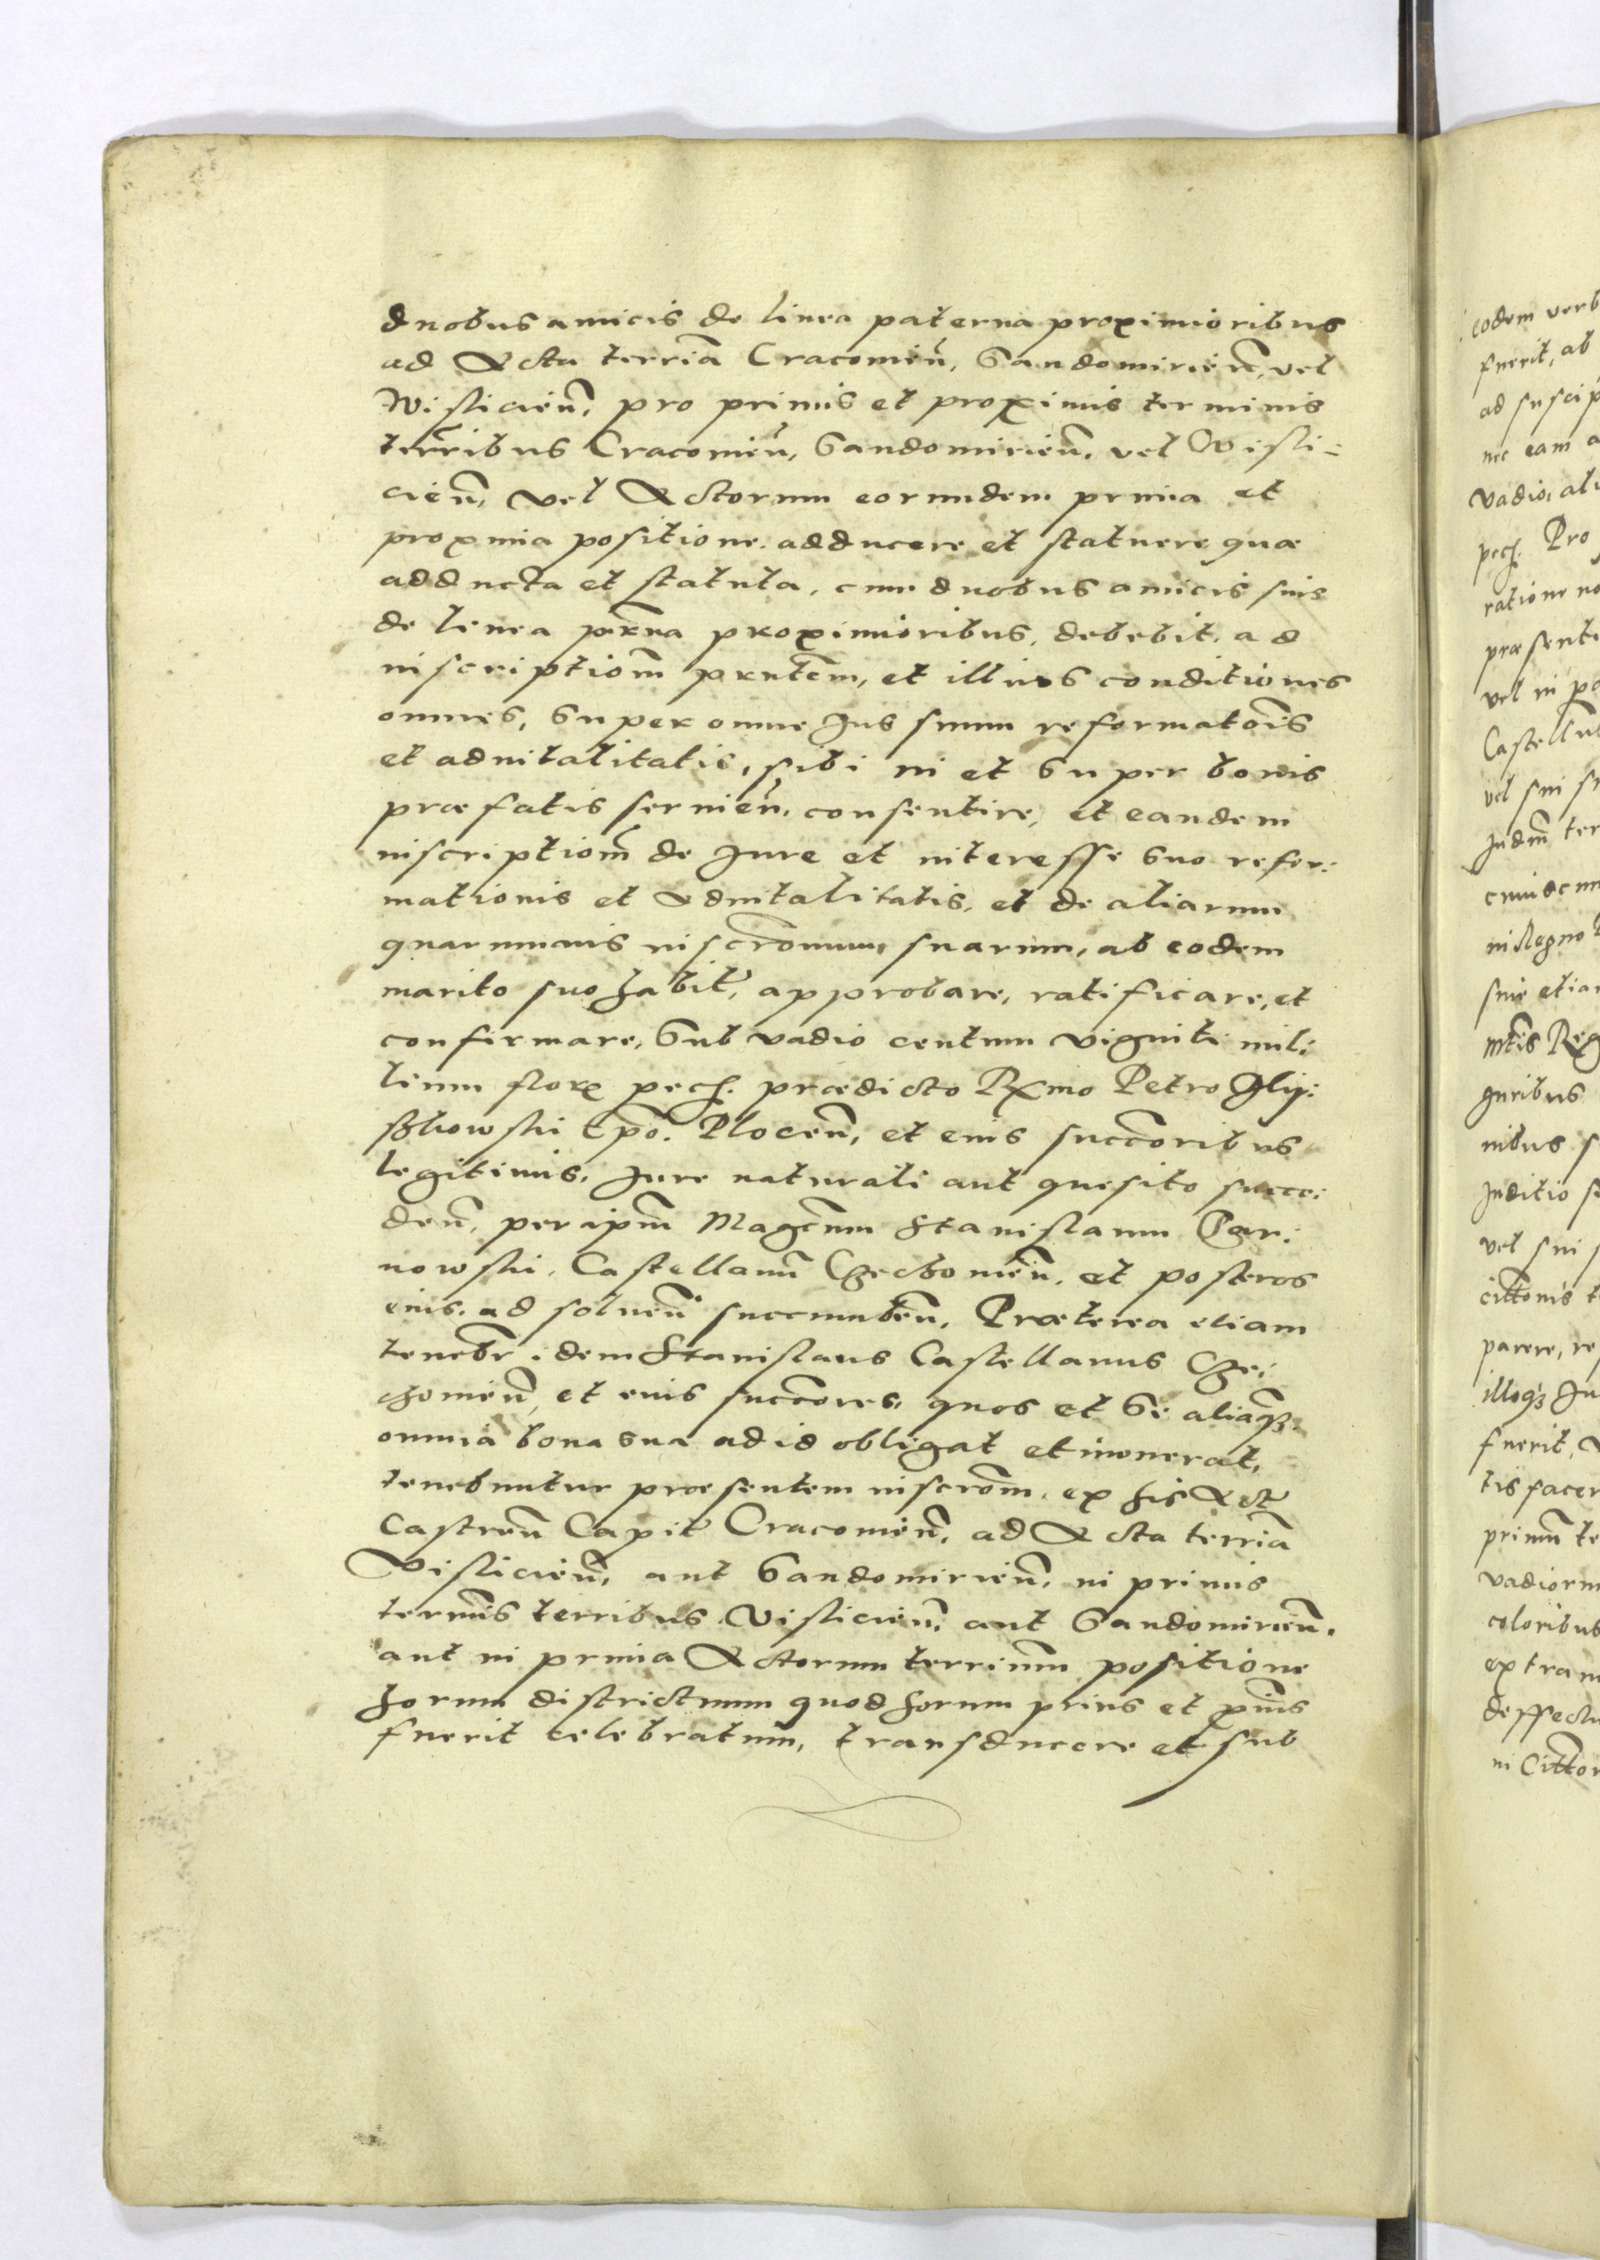 duobus amicis de linea paterna proximioribus
ad Acta terria͠ Cracouień, Sandomirień, vel
Wislicień, pro primis et proximis terminis
terr͠ribus Cracouień, Sandomirień, vel Wisli-
cień, vel Actorum eorundem prima et
proxima positione adducere et statuere quæ
adducta et statuta, cum duobus amicis suis
de linea pr͠na proximioribus, debebit, ad
inscriptiom͠ prntem͠, et illius conditiones
omnes, super omne Jus suum reformato͠is
et aduitalitatis, sibi in et super bonis
præfatis seruień, consentire, et eandem
inscriptiom͠ de Jure et interesse suo refor:
mationis et Aduitalitatis, et de aliarum
quarumuis inscro͠num, suarum, ab eodem
marito suo habit͠, approbare, ratificare, et
confirmare, Sub vadio centum viginti mil:
lium florx pech. prædicto Rx͠mo Petro
Ep͠o. Plocen͠, et eius succo͠ribus
legitimis, Jure naturali aut quesito succe:
den͠, per ipm͠ Magcum͠ Stanislaum Car:
nowski, Castellanu͠ Czechouień, et posteros
eius, ad soluen͠ succumben͠, Præterea etiam
tenebr͠ idem Stanislaus Castellanus Cze:
chouień, et eius succo͠res, quos et Se aliaq͠3
omnia bona sua ad id obligat et inonerat,
tenebuntur præsentem inscro͠m, ex his Act͠
Castren͠ Capit͠ Cracouień, ad Acta terria͠
Vislicień, aut Sandomirień, in primis
termi͠s terribus Vislicień, aut Sandomirień,
aut in prima Actorum terrium͠ positione
horum districtuum quod horum prius et p͠mis
fuerit celebratum, transducere et sub
eodem verb
fuerit, ab
ad suscip
nec eam a
vadio, ali
pech. Pro
ratione no
præsenti
vel in po
vel sui
cuiuscun
in Regno
siue etiam
Mtis Reg
nibus s
Juditio s
vel sui s
parere, re
fuerit,
tis facer
primu͠ te
vadiorum
coloribus
extran
deffectu
in Citto͠